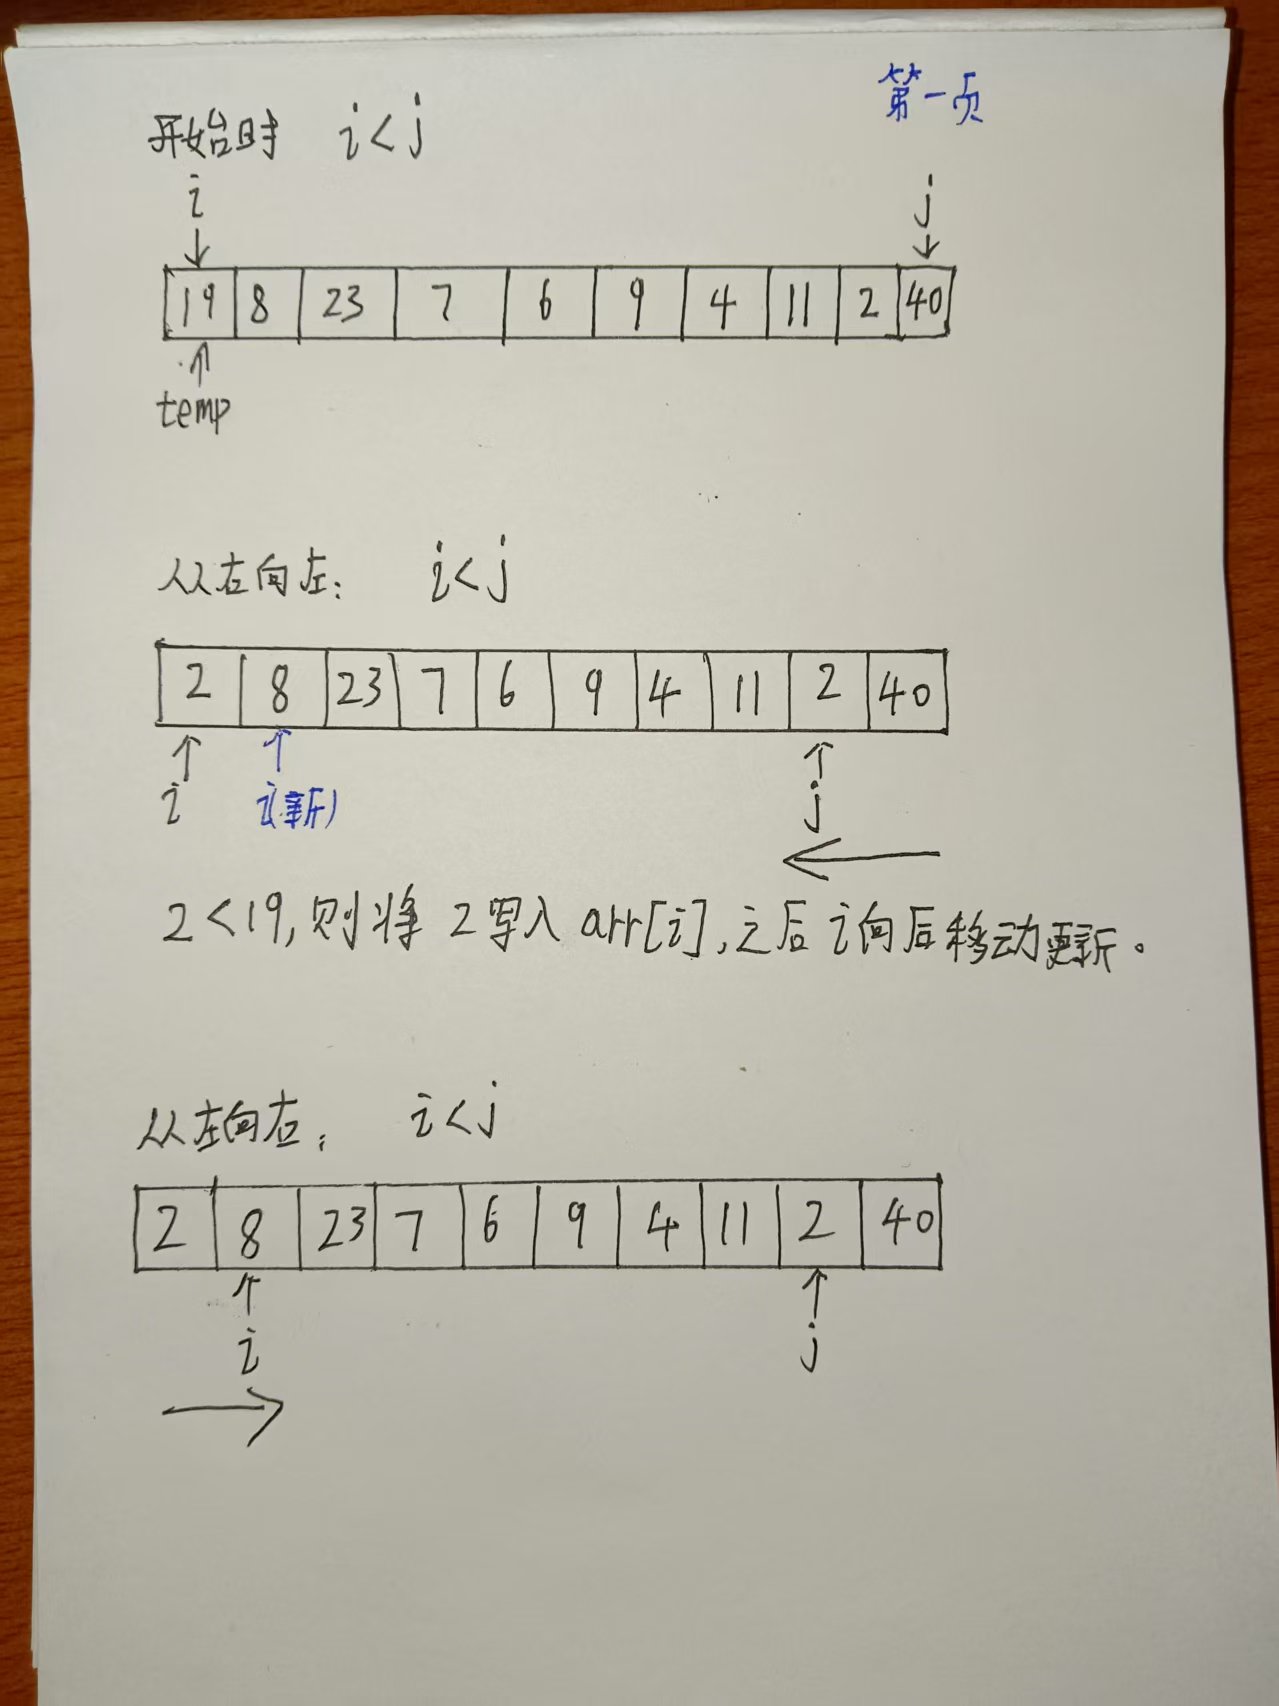 第一页
开始时 i<j
i j
19 8 23 7 6 9 4 11 2 40
temp
从右向左: i<j
2 8 23 7 6 9 4 11 2 40
i i(新) j
2<19,则将 2写入 arr[i],之后 i向后移动更新。
从左向右: i<j
2 8 23 7 6 9 4 11 2 40
i j